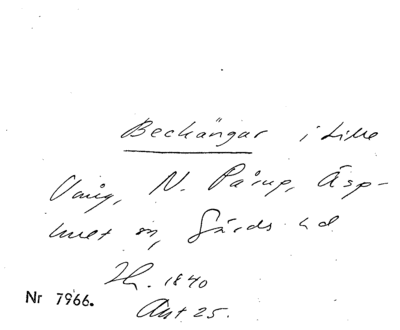 Beckängar i Lilla
Vång, N. Pårup, Äsp-
huet sn, Gärds hd
Lh. 1840
Nr 7966.
Akt 25.